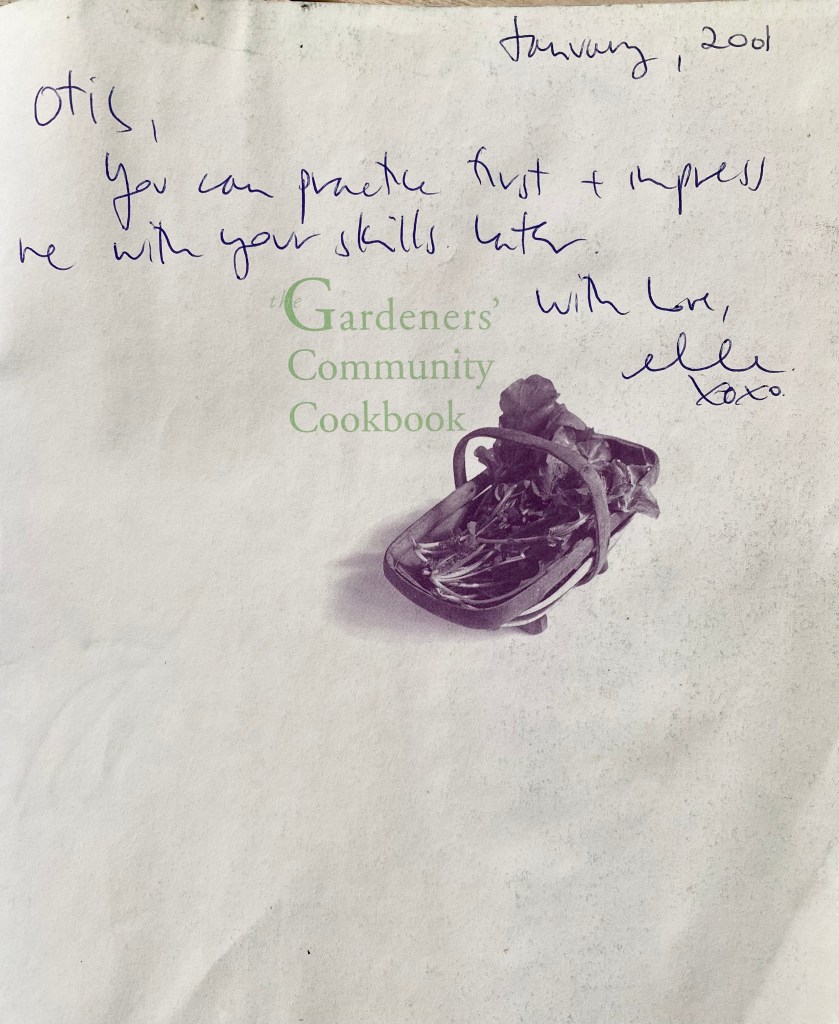 January, 2001
Otis,
You can practice first + impress
me with your skills later.
with Love,
elle
xoxo.
the Gardeners'
Community
Cookbook